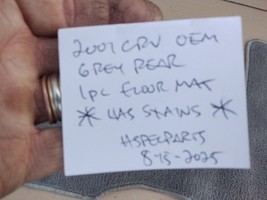 2007 CRV OEM
GREY REAR
1PC FLOOR MAT
* HAS STAINS *
HSPECPARTS
8-13-2025